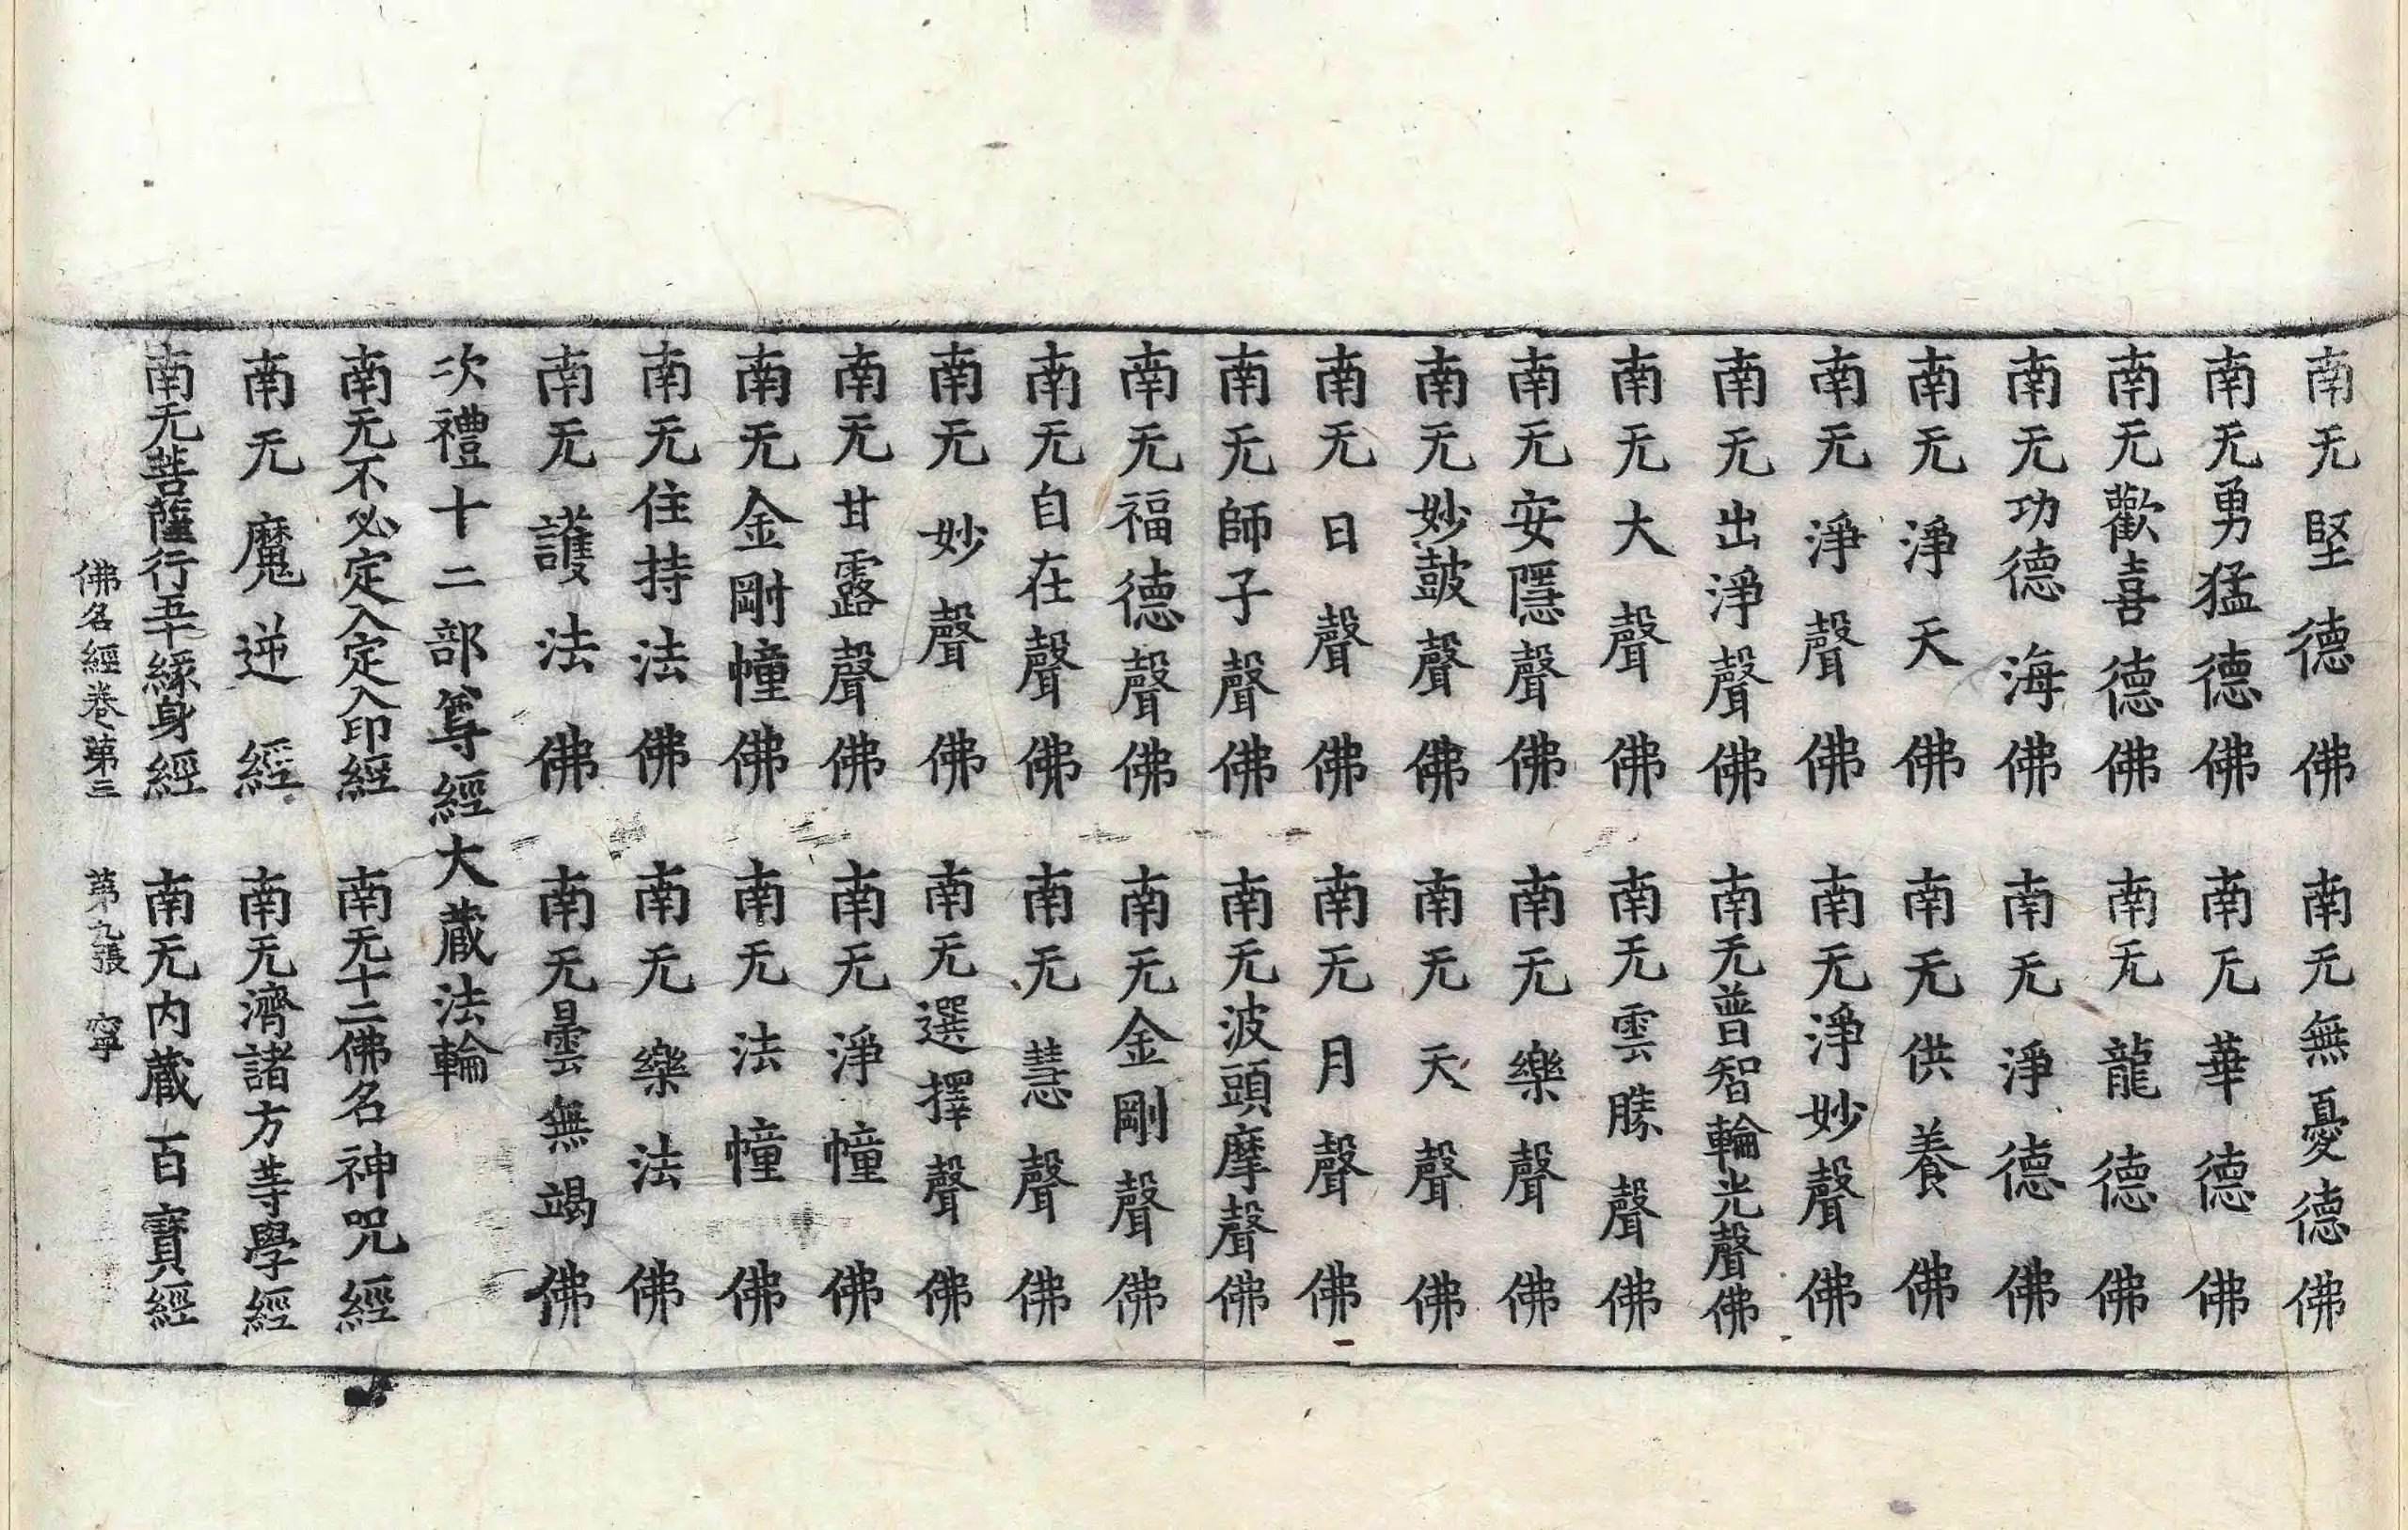 南无堅德佛　南无無憂德佛
南无勇猛德佛　南无華德佛
南无歡喜德佛　南无龍德佛
南无功德海佛　南无淨德佛
南无淨天佛　南无供養佛
南无淨聲佛　南无淨妙聲佛
南无出淨聲佛　南无普智輪光聲佛
南无大聲佛　南无雲勝聲佛
南无安隱聲佛　南无樂聲佛
南无妙鼓聲佛　南无天聲佛
南无日聲佛　南无月聲佛
南无師子聲佛　南无波頭摩聲佛
南无福德聲佛　南无金剛聲佛
南无自在聲佛　南无慧聲佛
南无妙聲佛　南无選擇聲佛
南无甘露聲佛　南无淨幢佛
南无金剛幢佛　南无法幢佛
南无住持法佛　南无樂法佛
南无護法佛　南无曇無竭佛
次禮十二部尊經大藏法輪
南无不必定入定入印經　南无十二佛名神呪經
南无魔逆經　南无濟諸方等學經
南无菩薩行五十緣身經　南无內藏百寶經
佛名經卷第三　第九張　寧